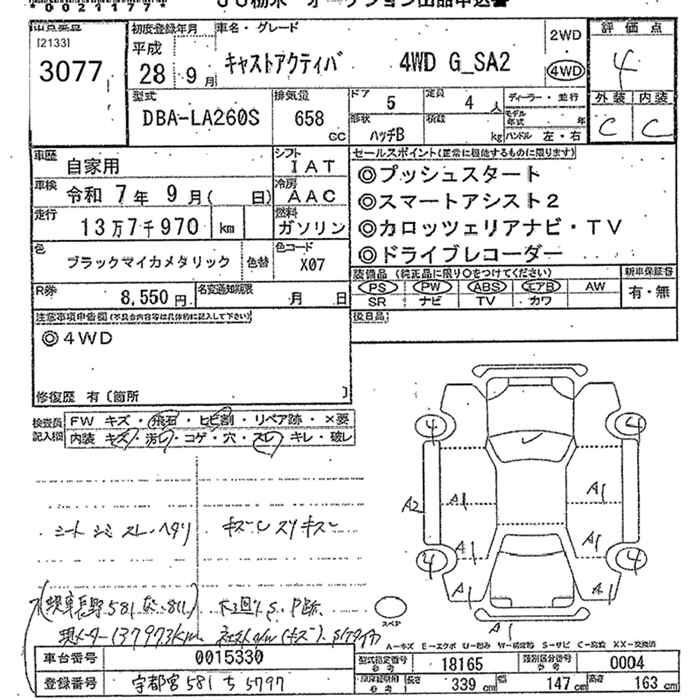 00211771
JU栃木 オークション出品申込書
出品番号
[2133]
3077
初度登録年月
平成
28年 9月
車名・グレード
キャストアクティバ 4WD G_SA2
2WD
4WD
評価点
4
外装 内装
C C
型式
DBA-LA260S
排気量
658 CC
ドア
5
定員
4 人
ディーラー・並行
形状
ハッチB
積載
kg
モデル年式 年
ハンドル 左・右
車歴
自家用
シフト
IAT
車検
令和 7年 9月( 日)
冷房
AAC
走行
13万7千970 km
燃料
ガソリン
色
ブラックマイカメタリック
色替
色コード
X07
R券
8,550円
名変通知期限
月 日
セールスポイント(正常に機能するものに限ります)
◎プッシュスタート
◎スマートアシスト2
◎カロッツェリアナビ・TV
◎ドライブレコーダー
装備品 (純正品に限り○をつけてください)
PS PW ABS エアB AW
SR ナビ TV カワ
新車保証書
有・無
後日品
注意事項申告欄(不具合内容等は具体的に記入して下さい)
◎4WD
修復歴 有〔箇所 〕
検査員記入欄
FW キズ・飛石・ヒビ割・リペア跡・×要
内装 キズ・汚レ・コゲ・穴・スレ・キレ・破レ
シート シミ スレ・ヘタリ
キズ
現メーター137973km
4 4
A1 A1
A2
A1
4 4
A1 A1
A1
スペア
A=キズ E=エクボ U=凹み W=補修跡 S=サビ C=腐蝕 XX=交換済
車台番号
0015330
登録番号
宇都宮 581 ち 5797
型式指定番号
参考
18165
類別区分番号
参考
0004
長さ
339 cm
幅
147 cm
高さ
163 cm